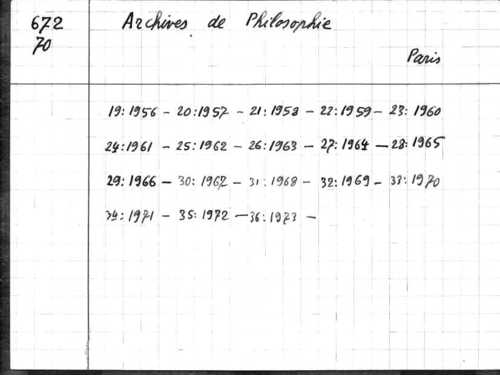 672
70
Archives de Philosophie
Paris
19:1956 - 20:1957 - 21:1958 - 22:1959 - 23:1960
24:1961 - 25:1962 - 26:1963 - 27:1964 - 28:1965
29:1966 - 30:1967 - 31:1968 - 32:1969 - 33:1970
34:1971 - 35:1972 - 36:1973 -